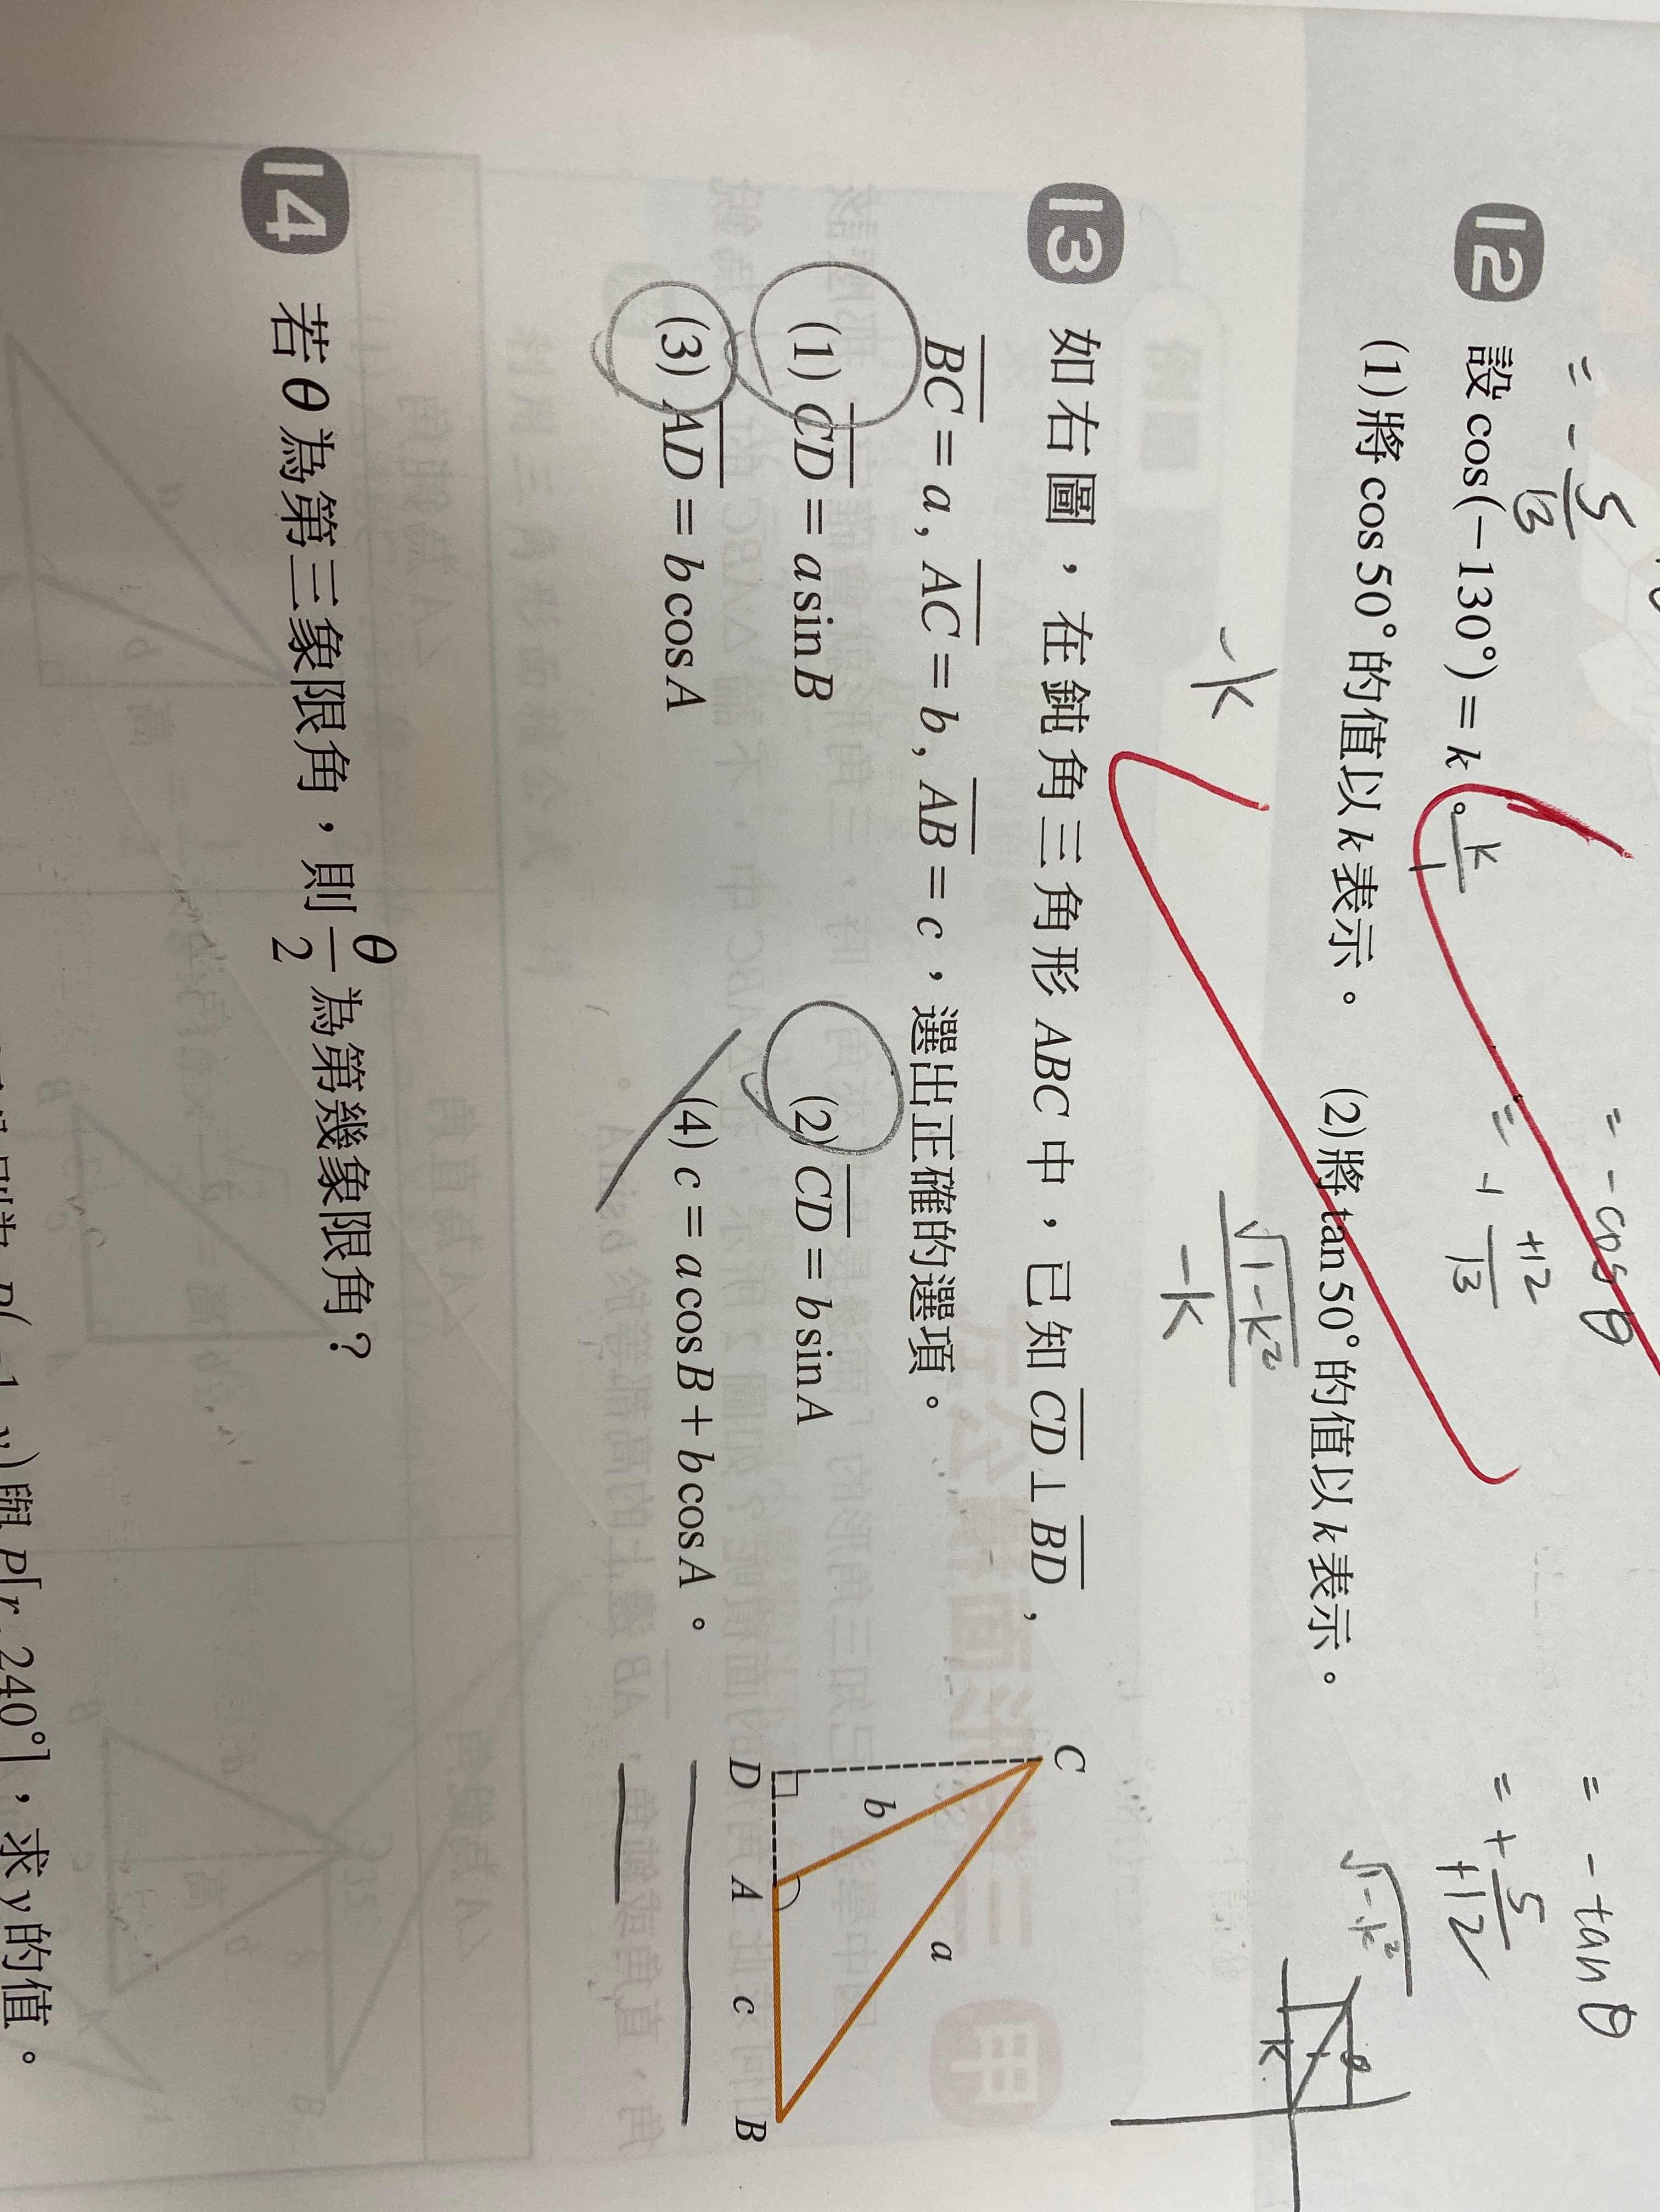 = - 5/13
= -cosθ
= -tanθ
12 設 cos(−130°) = k。 k/1
= - +12/13
= + 5/+12
(1)將 cos 50° 的值以 k 表示。 (2)將 tan 50° 的值以 k 表示。
-k
√1-k² / -k
√1-k²
k
13 如右圖，在鈍角三角形 ABC 中，已知 C̅D̅ ⊥ B̅D̅，
B̅C̅ = a, A̅C̅ = b, A̅B̅ = c，選出正確的選項。
(1) C̅D̅ = a sin B (2) C̅D̅ = b sin A
(3) A̅D̅ = b cos A (4) c = a cos B + b cos A。
C
b
a
D A c B
14 若 θ 為第三象限角，則 θ/2 為第幾象限角？
P(−1, y) 與 P[r, 240°]，求 y 的值。